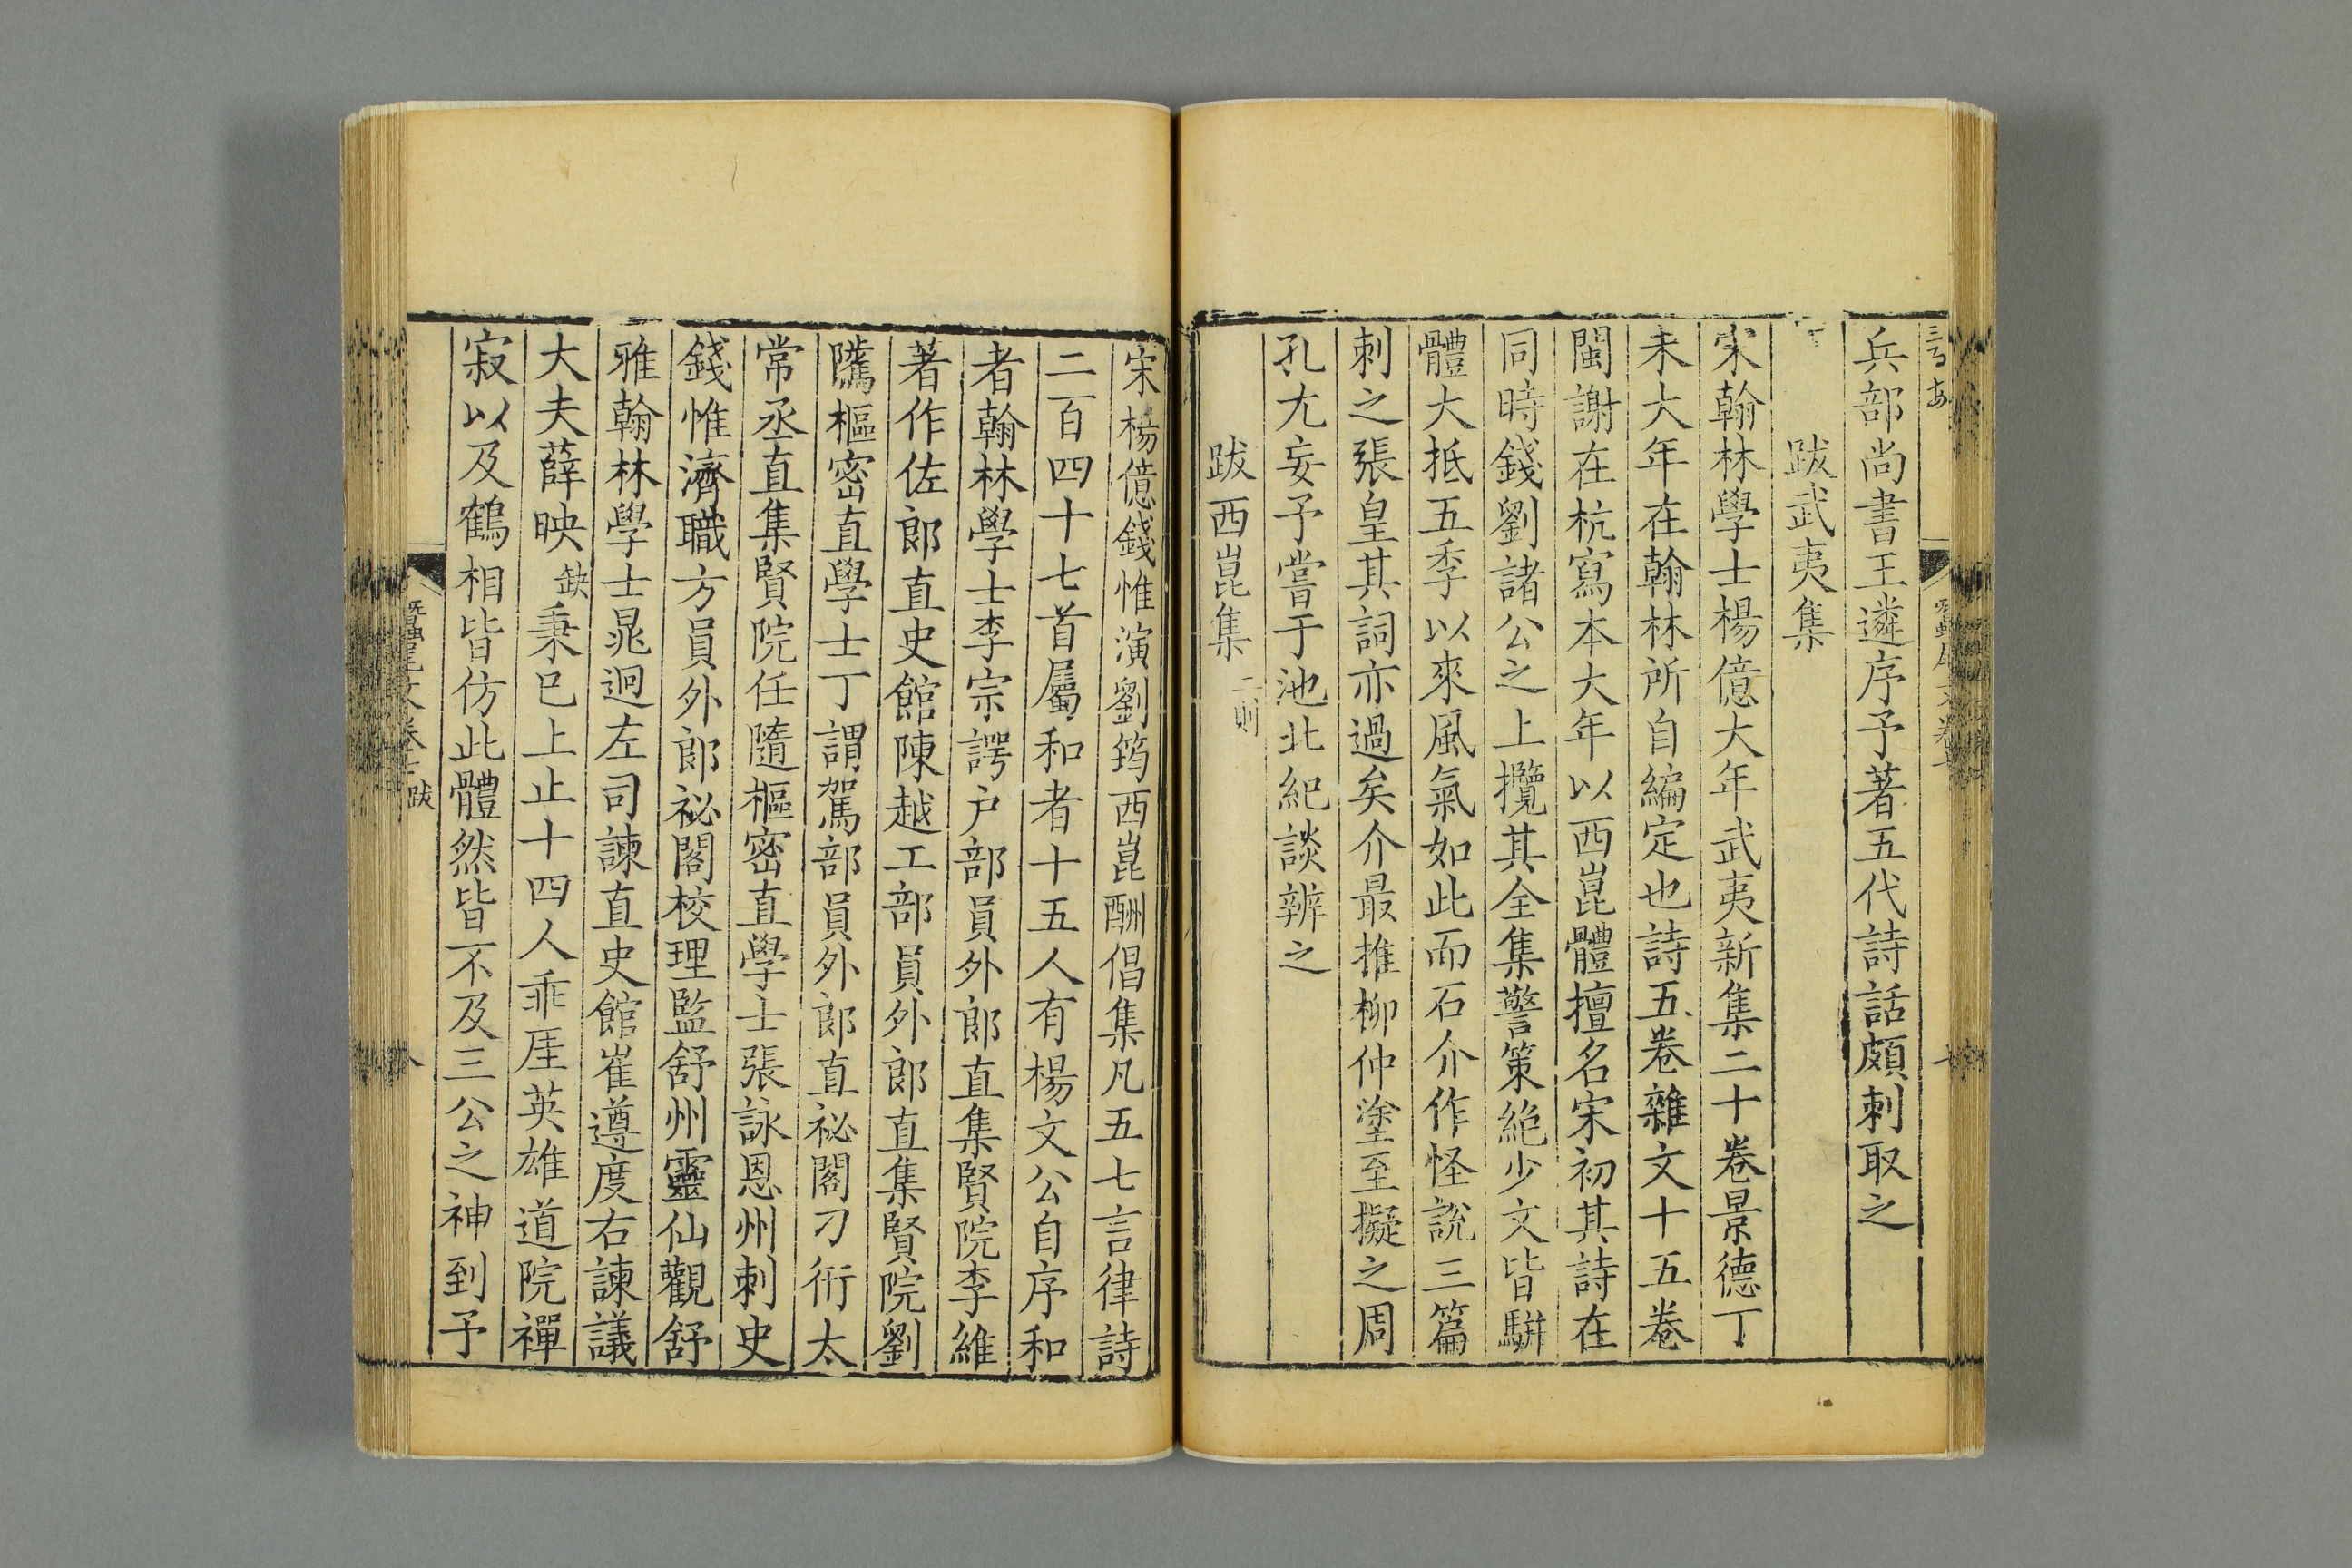 兵部尚書王遴序予著五代詩話頗刺取之
跋武夷集
宋翰林學士楊億大年武夷新集二十卷景德丁
未大年在翰林所自編定也詩五卷雜文十五卷
閩謝在杭寫本大年以西崑體擅名宋初其詩在
同時錢劉諸公之上攬其全集警策絶少文皆駢
體大抵五季以來風氣如此而石介作怪說三篇
刺之張皇其詞亦過矣介最推柳仲塗至擬之周
孔尤妄予嘗于池北紀談辨之
跋西崑集 二則
宋楊億錢惟演劉筠西崑酬倡集凡五七言律詩
二百四十七首屬和者十五人有楊文公自序和
者翰林學士李宗諤户部員外郎直集賢院李維
著作佐郎直史館陳越工部員外郎直集賢院劉
隲樞密直學士丁謂駕部員外郎直祕閣刁衎太
常丞直集賢院任隨樞密直學士張詠恩州刺史
錢惟濟職方員外郎祕閣校理監舒州靈仙觀舒
雅翰林學士晁迥左司諫直史館崔遵度右諫議
大夫薛映 缺 秉已上止十四人乖厓英雄道院禪
寂以及鶴相皆仿此體然皆不及三公之神到予
跋